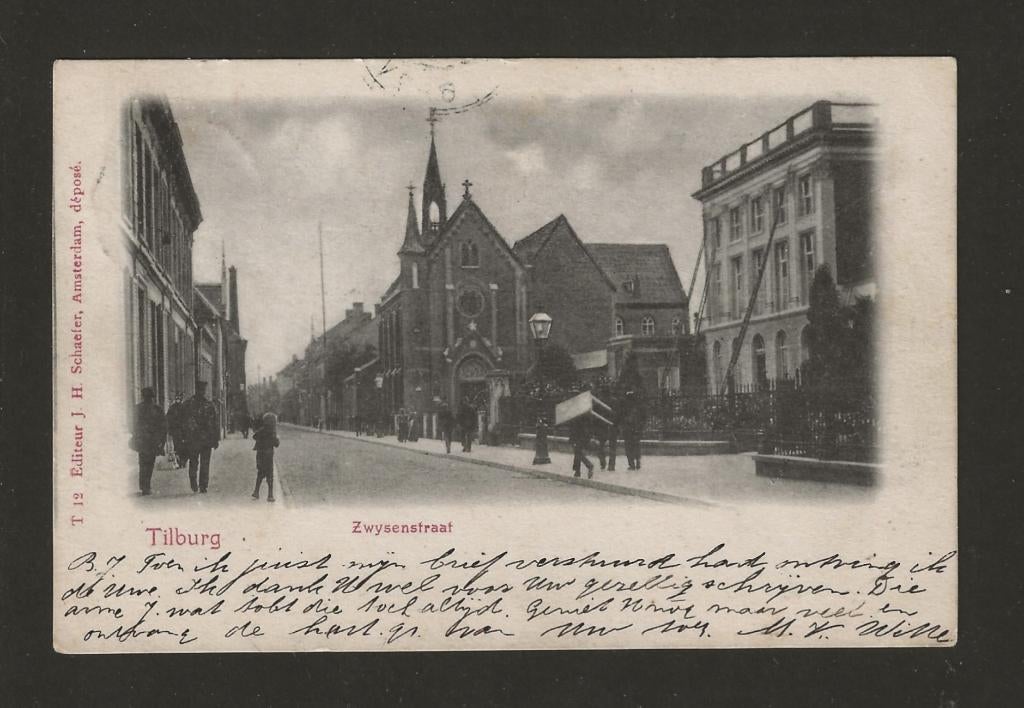 T 12 Editeur J. H. Schaefer, Amsterdam, déposé.
6
Tilburg
Zwysenstraat
B. J Toen ik juist mijn brief verstuurd had, ontving ik
de Uwe. Ik dank U wel voor Uw gezellig schrijven. Die
arme J. wat tobt die toch altijd. Geniet U nog maar veel en
ontvang de hart. gr. van Uw M. V. Wille